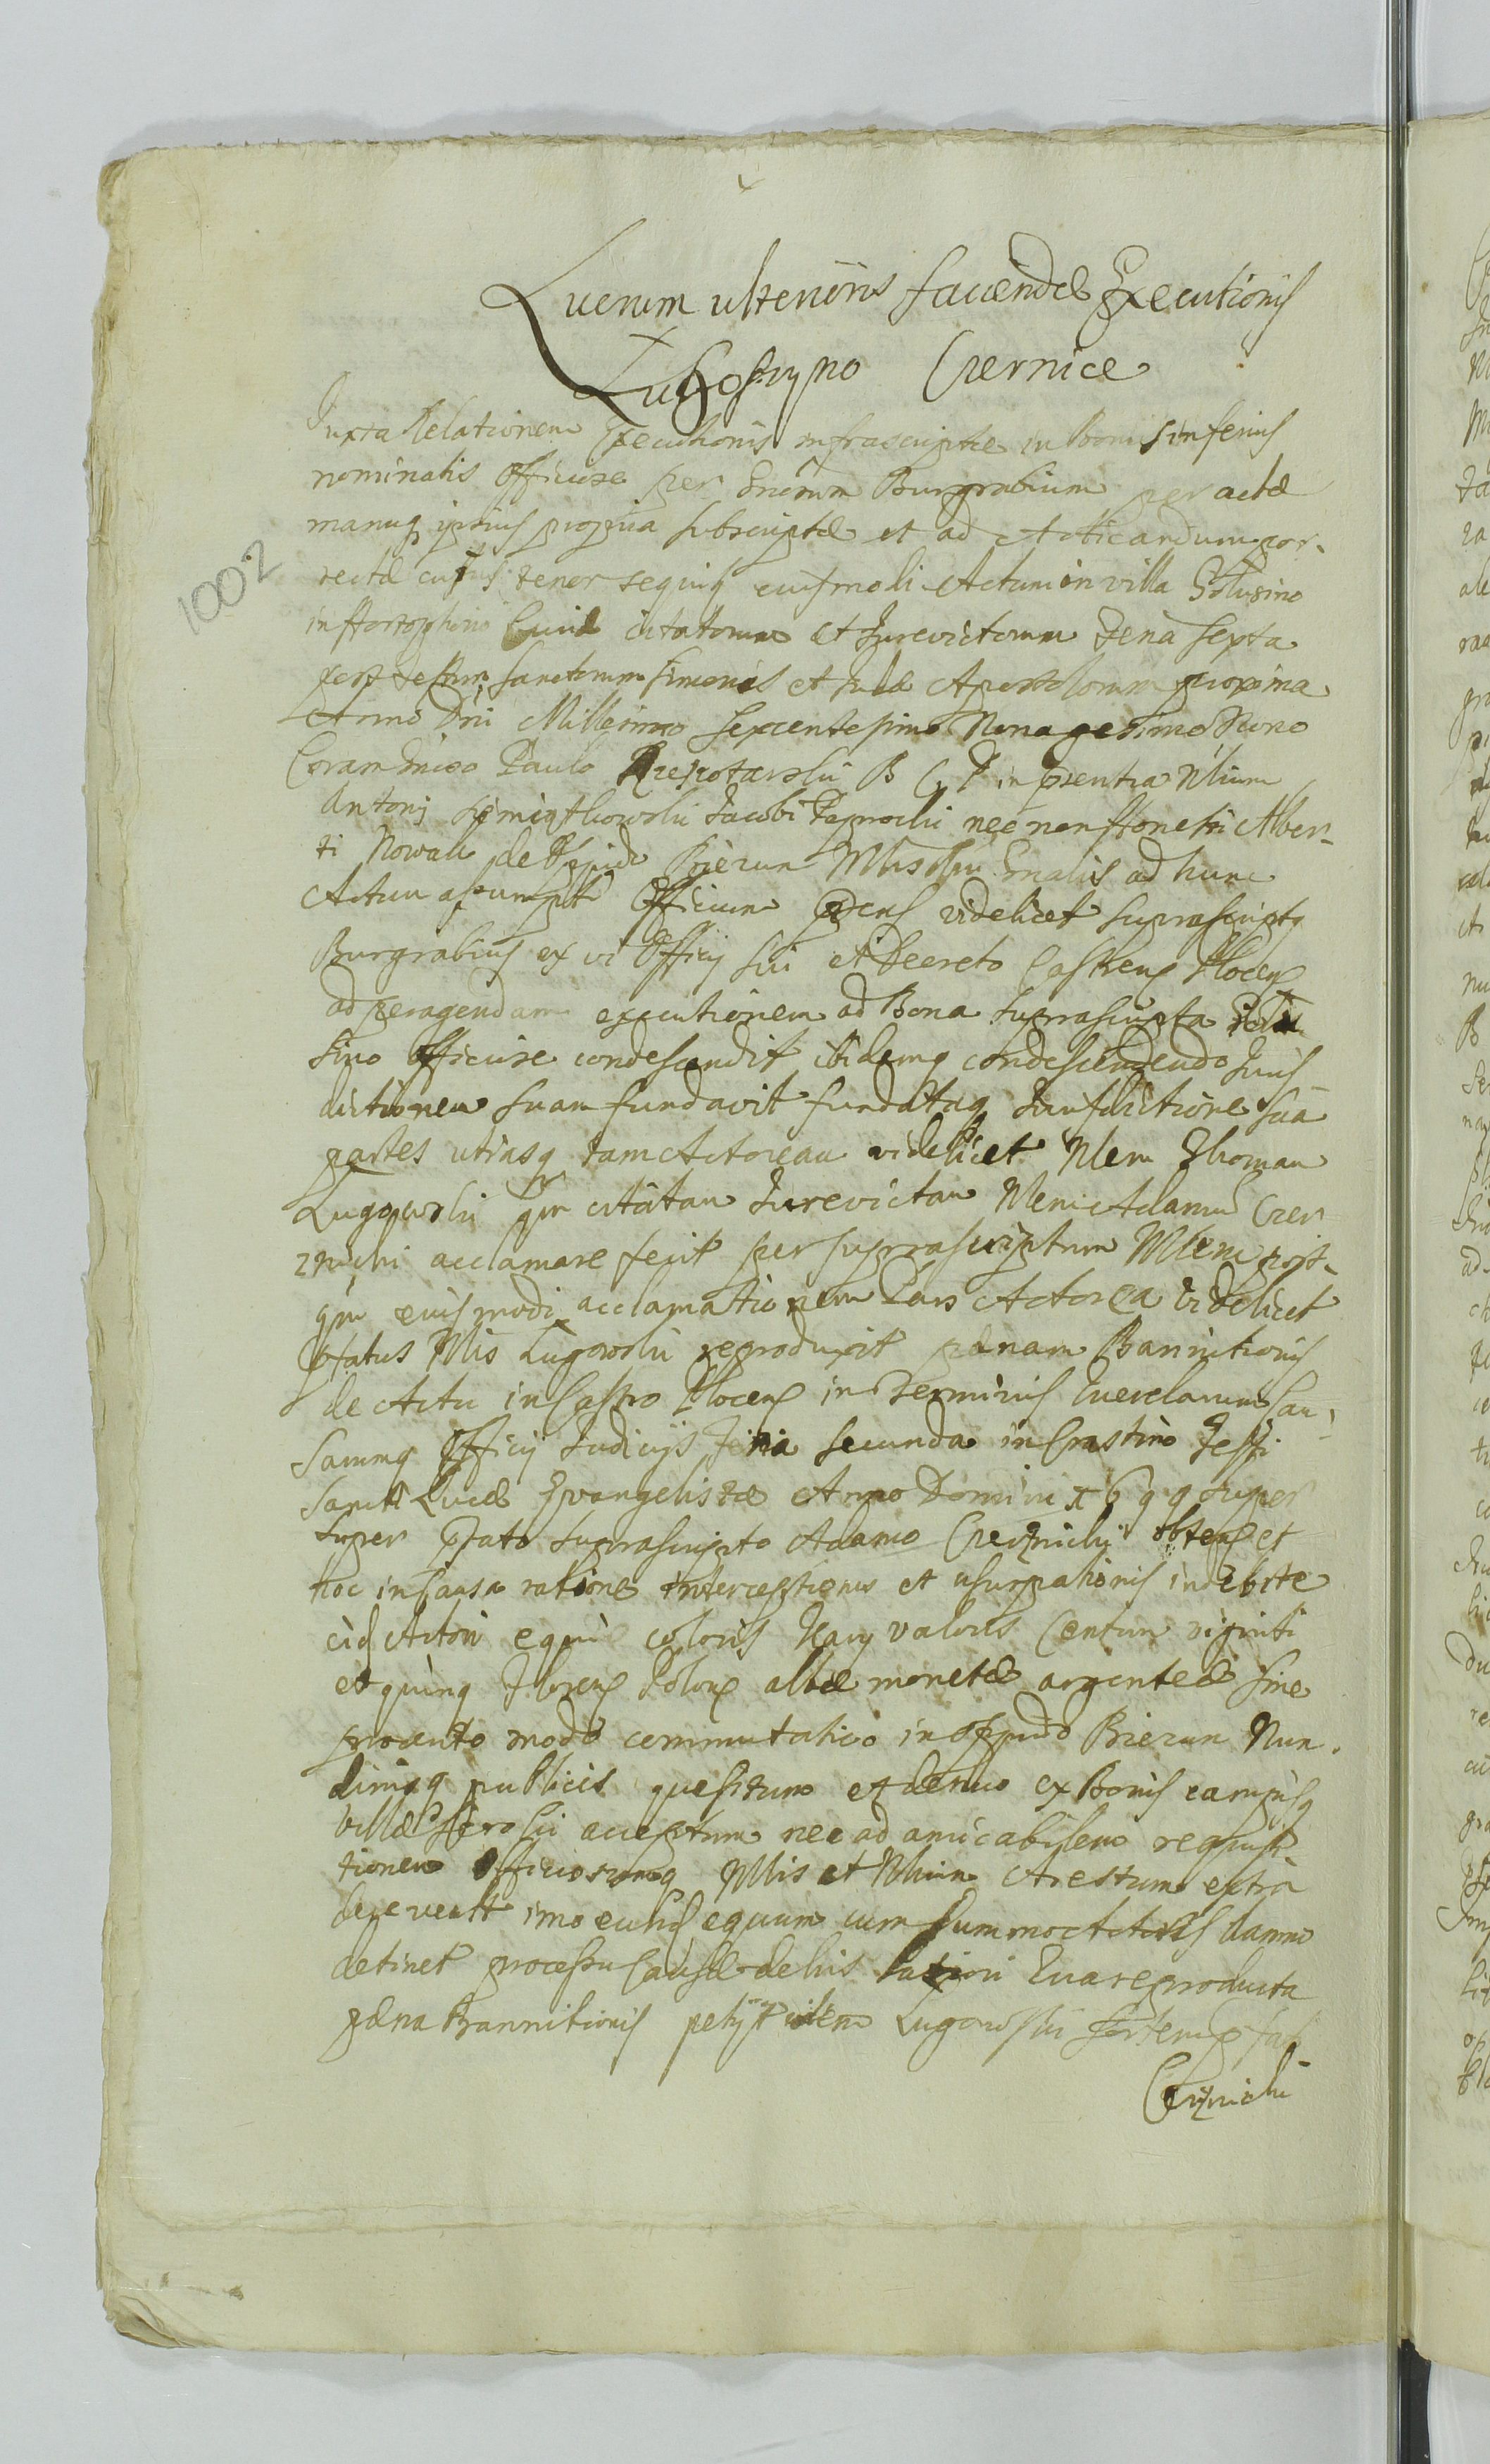 Lucrum ulterioris faciendæ Executionis
Lugowski Czernice
Juxta Relationem Executionis infrascriptæ in Bonis inferius
nominatis officiose per Burgrabium per actæ
manuq ipsius propria subscriptæ et ad Acticandum por-
rectæ cujus tenor sequiq eiusmodi Actum in villa Golusino
in citatorum et Jurevictorum feria sexta
post festum sanctorum Simonis et Judæ Apostolorum proxima
Anno Dni Millesimo Sexcentesimo Nonagesimo Nono
Coram Paulo B C P in psentia Nlium
Antonij Jacobi nec non Honesti Alber-
ti Nowak de Oppido Biezun Mlis ad hunc
Actum assumpti Officium pns videlicet suprascriptq
Burgrabius ex vi Officij sui et Decreto Castrens Plocens
ad peragendam executionem ad Bona suprascripta Golu
sino officiose condescendit ibidemq condescendendo Juris-
dictionem suam fundavit fundataq Jurisdictione sua
partes utrasq tam Actoream videlicet Nlem Thomam
Lugowski qm citatam Jurevictam Nlem Adamum Czer
znicki acclamare fecit per suprascriptum Mlem post-
qm eiusmodi acclamationem Pars Actorea videlicet
pfatus Nlis Lugowski reproduxit pænam Bannitionis
de Actu in Castro Plocens in Terminis Querelarum Cau-
sarumq Officij Judicijs Feria secunda in Crastino Festi
Sancti Lucæ Evangelistæ Anno Domini 1699 super
super pfato suprascripto Adamo Czerznicki obtens et
hoc in Causa ratione interceptionis et usurpationis indebite
eid Actori equi coloris Kary valoris Centum viginti
et quinq Florens Polons albæ monetæ argenteæ sine
modo commutatico in oppido Biezun Nun-
dinisq publicis quesitum et denuo ex Bonis campisq
villæ acceptum nec ad amicabilem requisi-
tionem Officiosumq Mlis et Nlium Arestum extra
imo eund equum cum summo Actoris damno
detinet processu Causæ de his latiori Qua reproducta
pæna Bannitionis petijt idem Lugowski
Czerznicki
1002